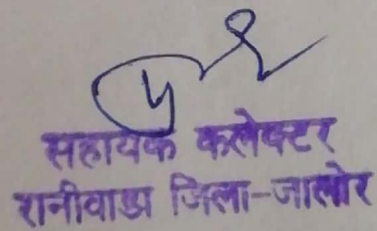 सहायक कलेक्टर
रानीवाडा जिला-जालोर